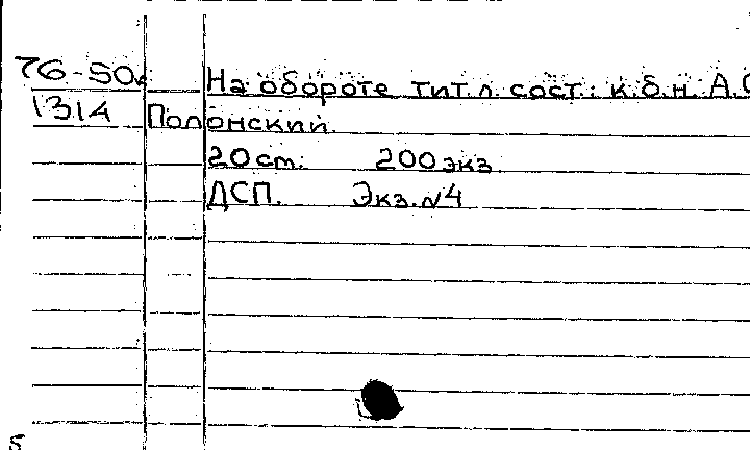 76-50
На обороте тит.л. сост.: к.б.н. А.С
1314 Полонский.
20 ст. 200 экз.
ДСП. Экз.№4
5